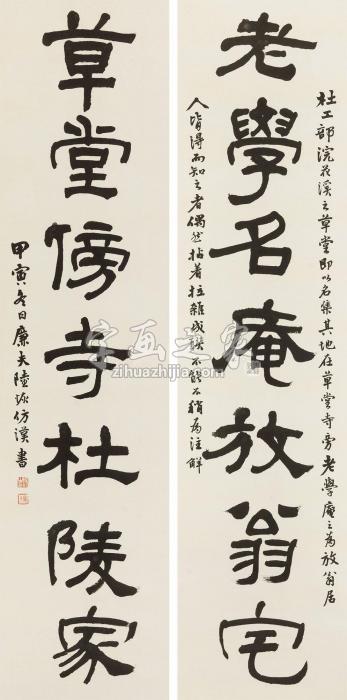 老學名庵放翁宅
杜工部浣花溪之草堂即以名集其地在草堂寺旁老學庵之為放翁居
人皆得而知之者偶然拈着拉雜成聯不能不稍為注解
草堂傍寺杜陵家
甲寅冬日廉夫陸恢仿漢書
字画之家
zihuazhijia.com